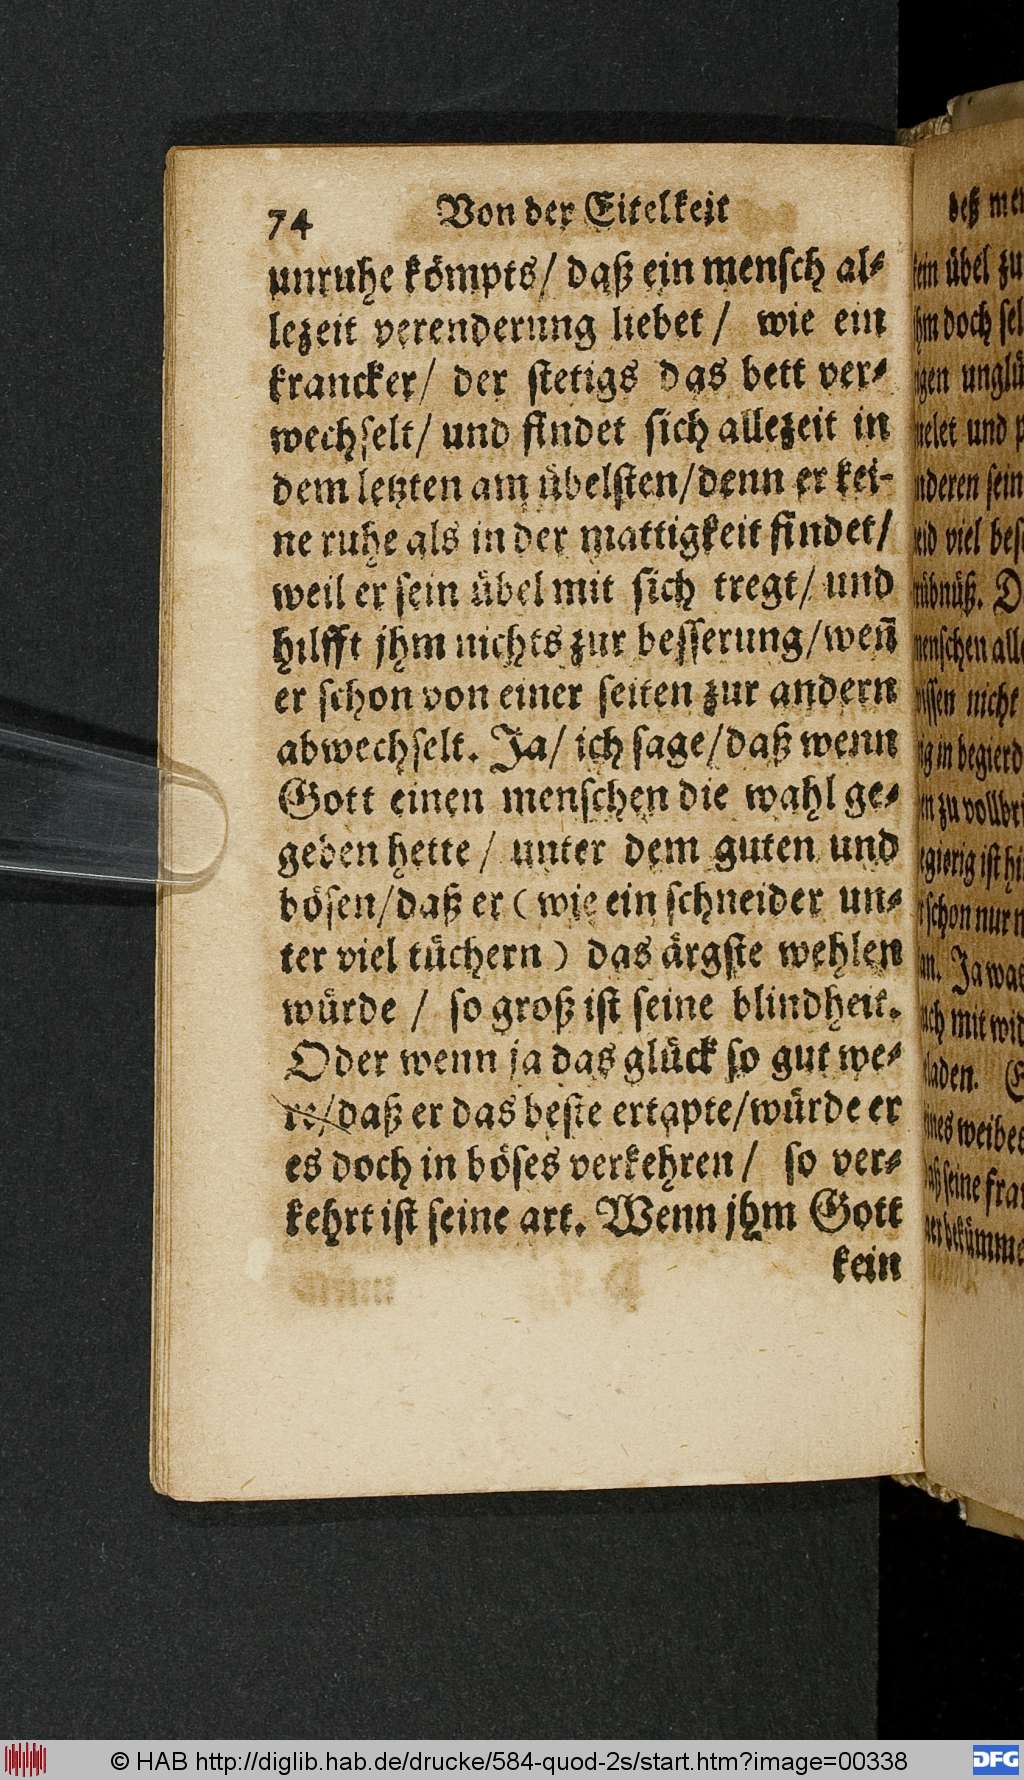 74 Von der Eitelkeit
unruhe kömpts/ daß ein mensch al⸗
lezeit verenderung liebet / wie ein
krancker/ der stetigs das bett ver⸗
wechselt/ und findet sich allezeit in
dem letzten am übelsten/denn er kei-
ne ruhe als in der mattigkeit findet/
weil er sein übel mit sich tregt/ und
hilfft jhm nichts zur besserung/weñ
er schon von einer seiten zur andern
abwechselt. Ja/ ich sage/daß wenn
Gott einen menschen die wahl ge⸗
geben hette / unter dem guten und
bösen/daß er ( wie ein schneider un⸗
ter viel tüchern ) das ärgste wehlen
würde / so groß ist seine blindheit.
Oder wenn ja das glück so gut we⸗
re/daß er das beste ertapte/würde er
es doch in böses verkehren / so ver⸗
kehrt ist seine art. Wenn jhm Gott
kein
deß
übel zu
doch
nicht
Ja
© HAB http://diglib.hab.de/drucke/584-quod-2s/start.htm?image=00338
DFG